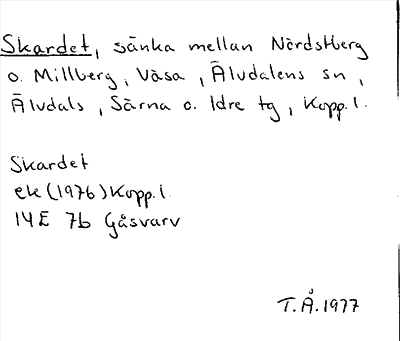 Skardet, sänka mellan Nordstberg
o. Millberg, Våsa, Älvdalens sn,
Älvdals, Särna o. Idre tg, Kopp. l.
Skardet
ek (1976) Kopp. l.
14E 7b Gåsvarv
T.Å. 1977